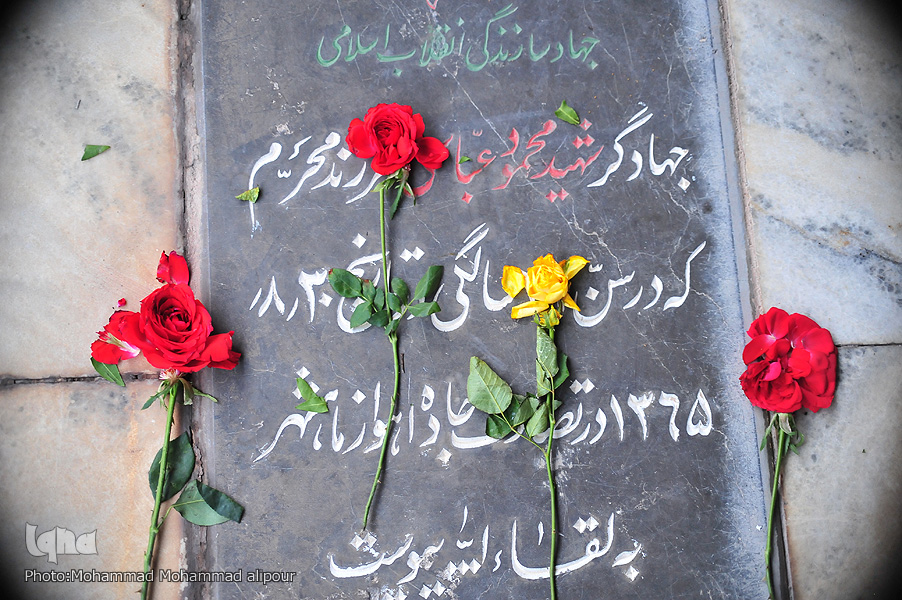 جهاد سازندگی انقلاب اسلامی
جهادگر شهید محمود عباس فرزند محرّم
که در سنّ سالگی تاریخ ۸٫۳۰٫
۱۳۶۵ در تصادف جاده اهواز ماهشهر
به لقاءالله پیوست
iqna
Photo:Mohammad Mohammad alipour